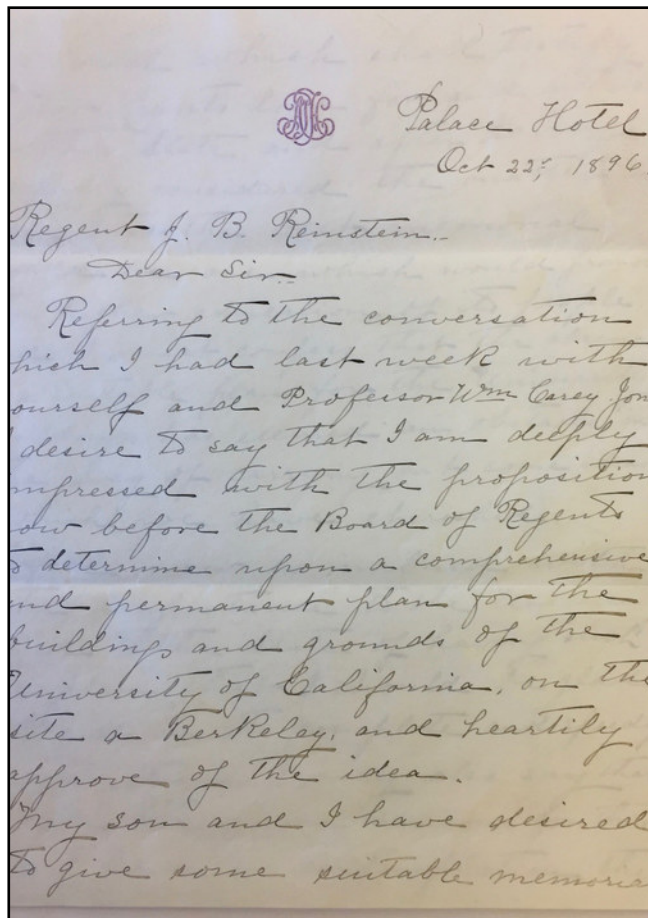 Palace Hotel
Oct 22d, 1896.
Regent J. B. Reinstein.
Dear Sir
Referring to the conversation
hich I had last week with
ourself and Professor Wm Carey Jon
I desire to say that I am deeply
mpressed with the proposition
ow before the Board of Regents
to determine upon a comprehensive
and permanent plan for the
buildings and grounds of the
University of California, on the
site a Berkeley, and heartily
approve of the idea.
My son and I have desired
to give some suitable memoria